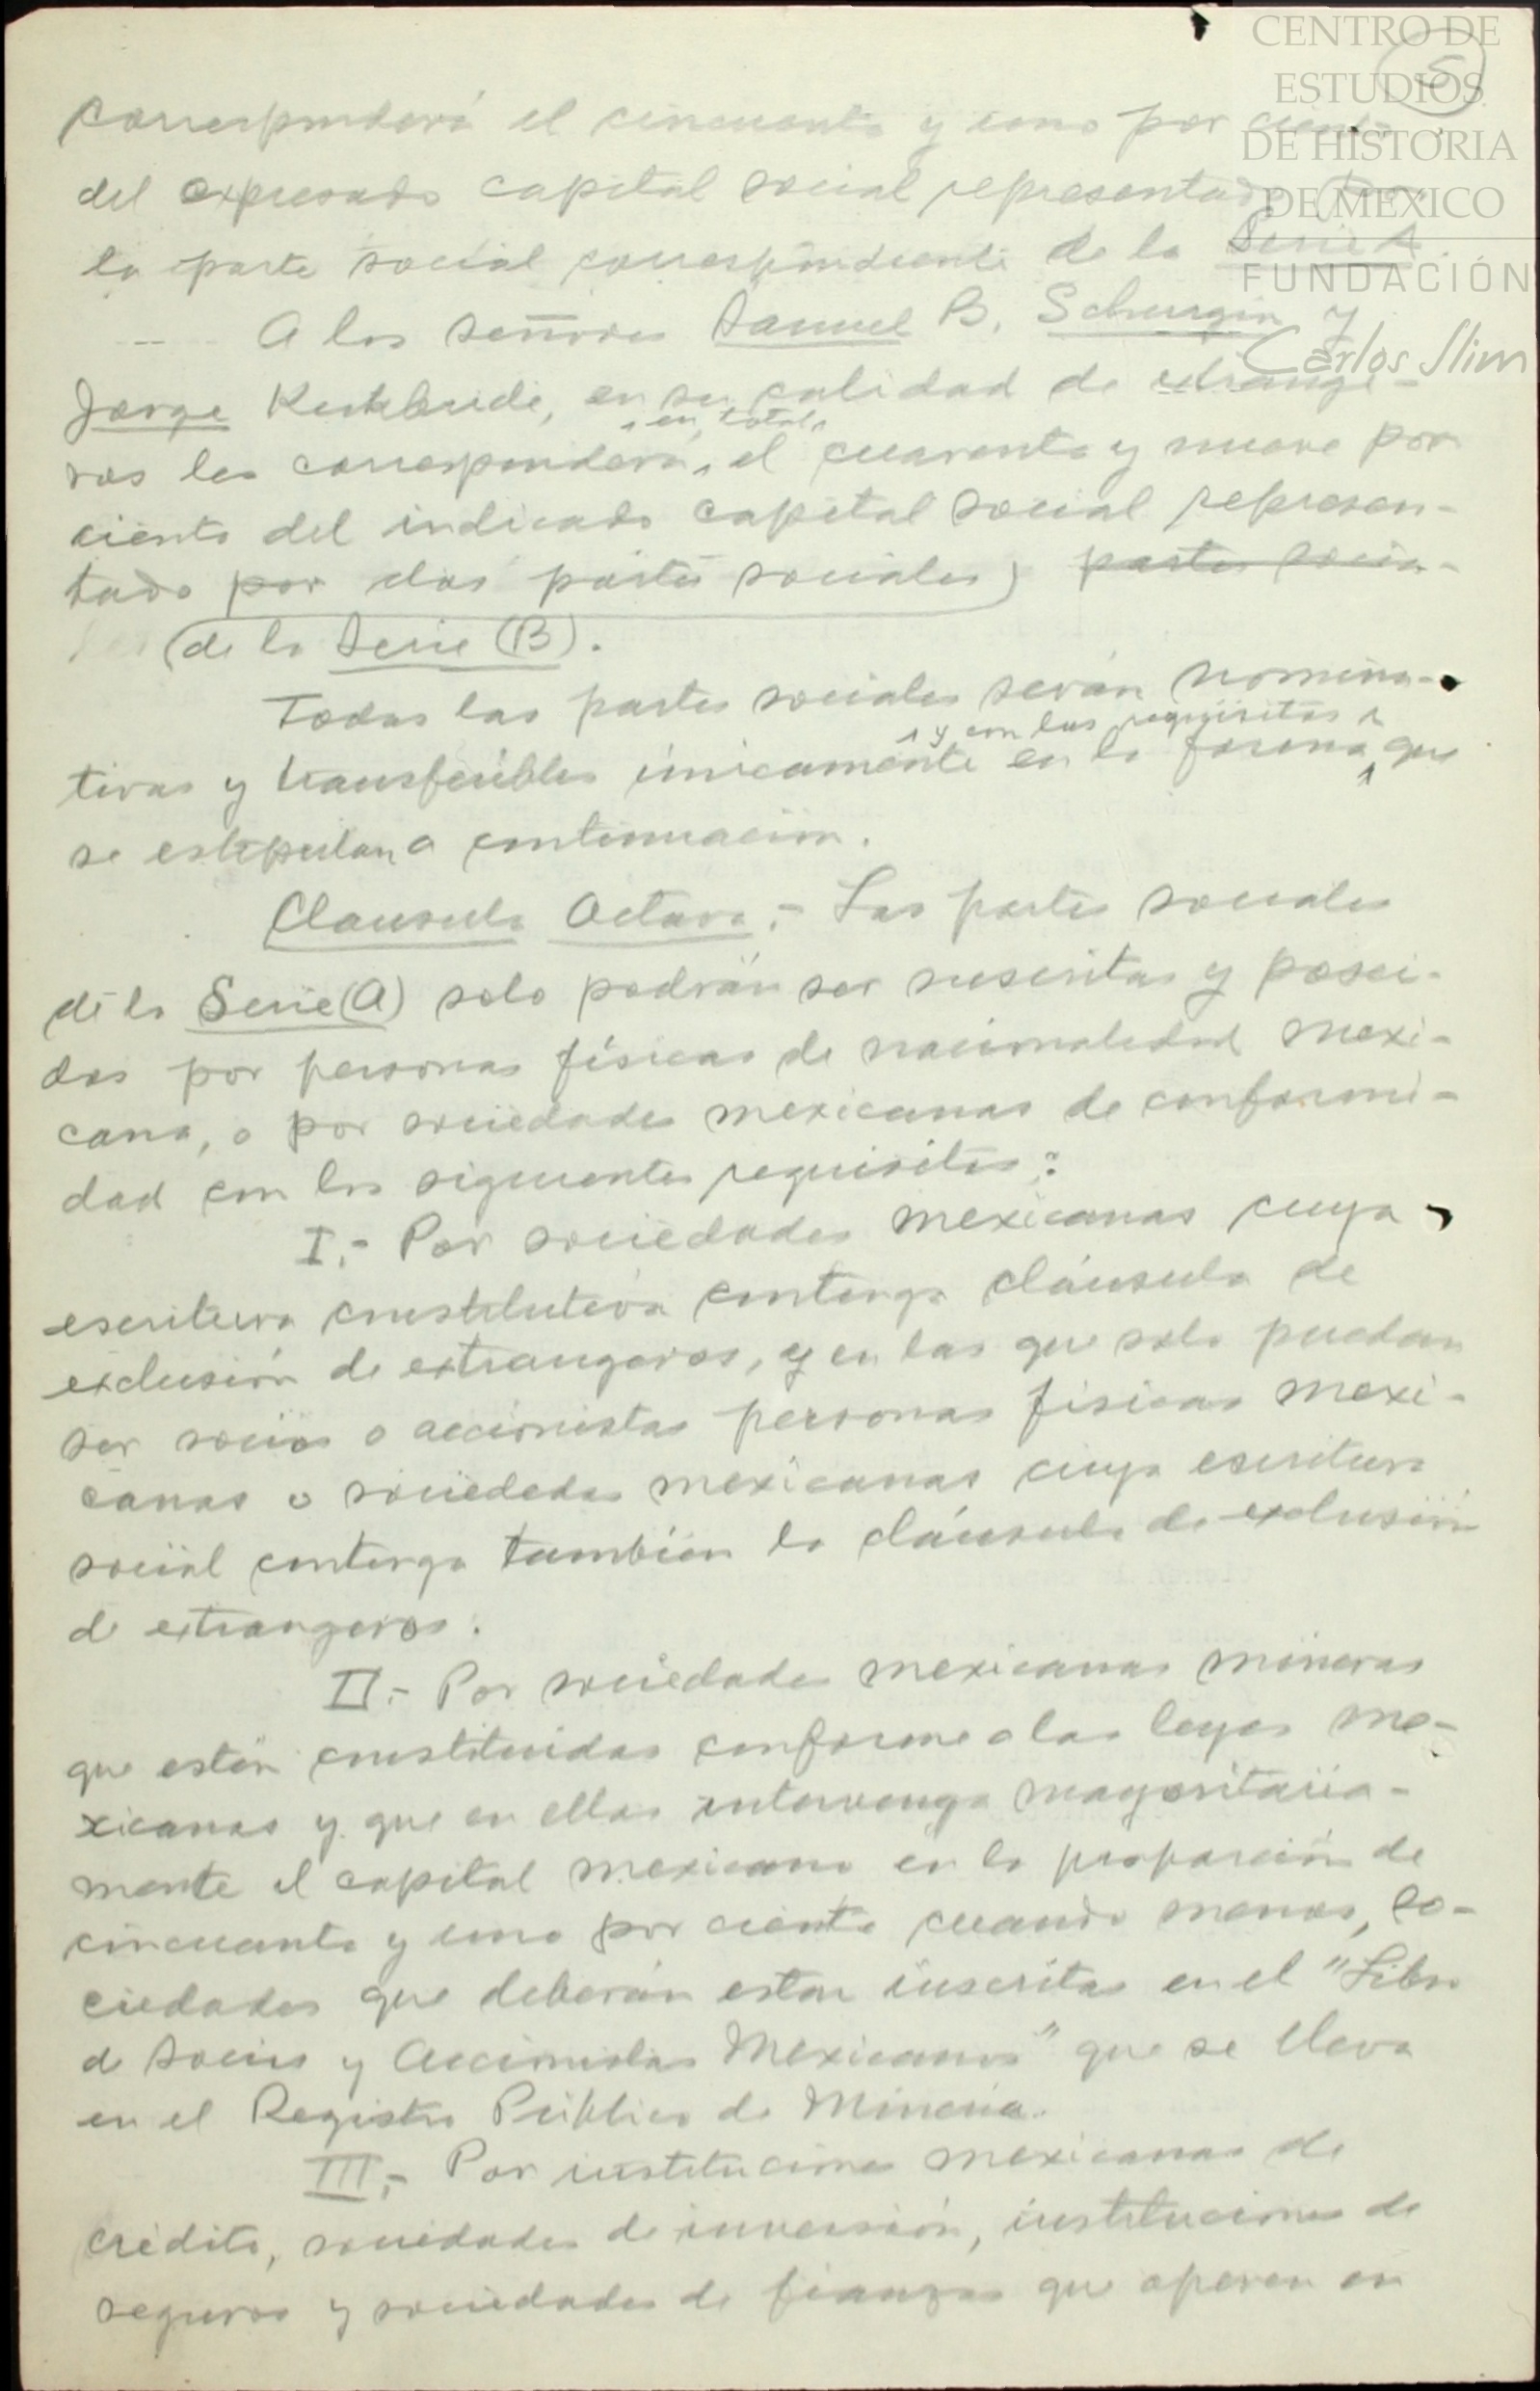 CENTRO DE
ESTUDIOS
DE HISTORIA
DE MEXICO
FUNDACIÓN
Carlos Slim
5
corresponderá el cincuenta y uno por ciento
del expresado capital social representado por
la parte social correspondiente de la Serie A.
A los señores Samuel B. Schurgin y
Jorge Kirkbride, en su calidad de extrange-
ros les corresponderá, en total, el cuarenta y nueve por
ciento del indicado capital social represen-
tado por dos partes sociales, partes socia-
les (de la Serie (B).
Todas las partes sociales serán nomina-
tivas y transferibles únicamente en la forma y con los requisitos que
se estipulan a continuación.
Clausula Octava.- Las partes sociales
de la Serie (A) solo podrán ser suscritas y posei-
das por personas físicas de nacionalidad mexi-
cana, o por sociedades mexicanas de conformi-
dad con los siguientes requisitos:
I.- Por sociedades mexicanas cuya
escritura constitutiva contenga cláusula de
exclusión de extrangeros, y en las que solo puedan
ser socios o accionistas personas físicas mexi-
canas o sociedades mexicanas cuya escritura
social contenga también la cláusula de exclusión
de extrangeros.
II.- Por sociedades mexicanas mineras
que estén constituidas conforme a las leyes me-
xicanas y que en ellas intervenga mayoritaria-
mente el capital mexicano en la proporción de
cincuenta y uno por ciento cuando menos, so-
ciedades que deberán estar inscritas en el "Libro
de Socios y Accionistas Mexicanos" que se lleva
en el Registro Público de Minería.
III.- Por instituciones mexicanas de
crédito, sociedades de inversión, instituciones de
seguros y sociedades de fianzas que operen en